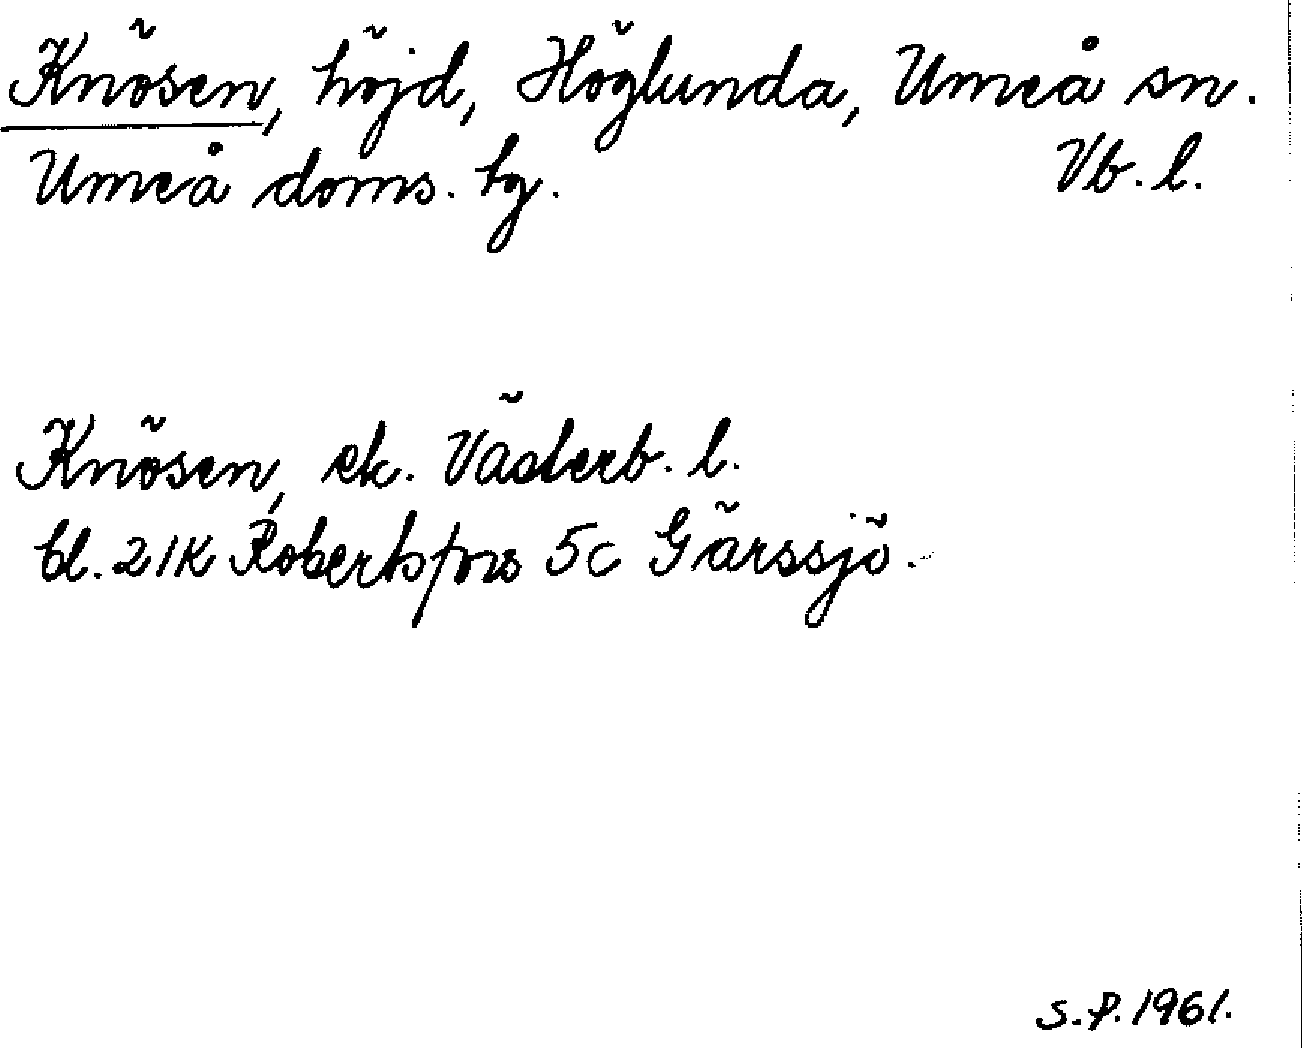 Knösen, höjd, Höglunda, Umeå sn.
Umeå doms. tg. Vb. l.
Knösen, ek. Västerb. l.
bl. 21K Robertsfors 5c Gärssjö.
S.P. 1961.